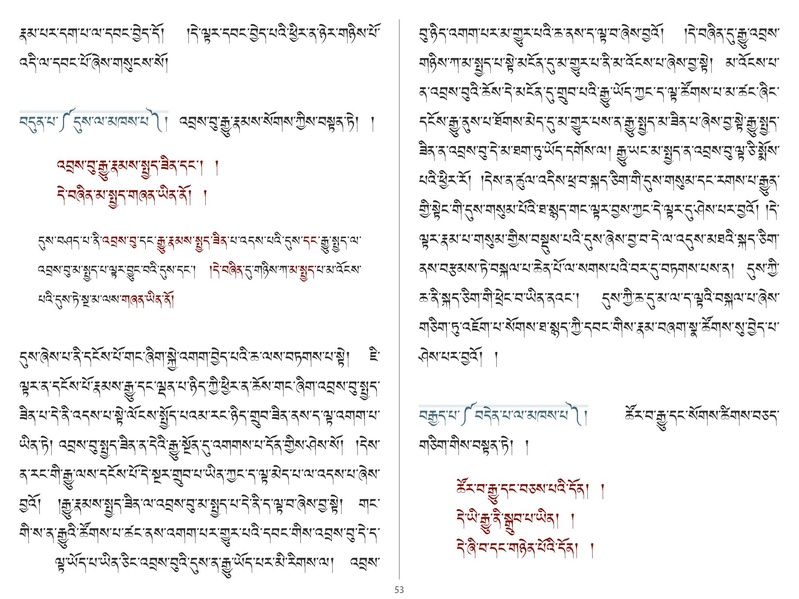 རྣམ་པར་དག་པ་ལ་དབང་བྱེད་དོ། །དེ་ལྟར་དབང་བྱེད་པའི་ཕྱིར་ན་ཉེར་གཉིས་པོ་
འདི་ལ་དབང་པོ་ཞེས་གསུངས་སོ། །
བདུན་པ་༼དུས་ལ་མཁས་པ་༽། འབྲས་བུ་རྒྱུ་རྣམས་སོགས་ཀྱིས་བསྟན་ཏེ། །
འབྲས་བུ་རྒྱུ་རྣམས་སྤྱད་ཟིན་དང་། །
དེ་བཞིན་མ་སྤྱད་གཞན་ཡིན་ནོ། །
དུས་བཤད་པ་ནི་འབྲས་བུ་དང་རྒྱུ་རྣམས་སྤྱད་ཟིན་པ་འདས་པའི་དུས་དང་རྒྱུ་སྤྱད་ལ་
འབྲས་བུ་མ་སྤྱད་པ་ལྟར་བྱུང་བའི་དུས་དང་། །དེ་བཞིན་དུ་གཉིས་ཀ་མ་སྤྱད་པ་མ་འོངས་
པའི་དུས་ཏེ་སྔ་མ་ལས་གཞན་ཡིན་ནོ། །
དུས་ཞེས་པ་ནི་དངོས་པོ་གང་ཞིག་སྐྱེ་འགག་བྱེད་པའི་ཆ་ལས་བཏགས་པ་སྟེ། ཇི་
ལྟར་ན་དངོས་པོ་རྣམས་རྒྱུ་དང་ལྡན་པ་ཉིད་ཀྱི་ཕྱིར་ན་ཆོས་གང་ཞིག་འབྲས་བུ་སྤྱད་
ཟིན་པ་དེ་ནི་འདས་པ་སྟེ་ལོངས་སྤྱོད་པའམ་རང་ཉིད་གྲུབ་ཟིན་ནས་ད་ལྟ་འགག་པ་
ཡིན་ཏེ། འབྲས་བུ་སྤྱད་ཟིན་ན་དེའི་རྒྱུ་སྔོན་དུ་འགགས་པ་དོན་གྱིས་ཤེས་སོ། །དེས་
ན་རང་གི་རྒྱུ་ལས་དངོས་པོ་དེ་སྔར་གྲུབ་པ་ཡིན་ཀྱང་ད་ལྟ་མེད་པ་ལ་འདས་པ་ཞེས་
བྱའོ། །རྒྱུ་རྣམས་སྤྱད་ཟིན་ལ་འབྲས་བུ་མ་སྤྱད་པ་དེ་ནི་ད་ལྟ་བ་ཞེས་བྱ་སྟེ། གང་
གི་ས་ན་རྒྱུའི་ཚོགས་པ་ཚང་ནས་འགག་པར་གྱུར་པའི་དབང་གིས་འབྲས་བུ་དེ་ད་
ལྟ་ཡོད་པ་ཡིན་ཅིང་འབྲས་བུའི་དུས་ན་རྒྱུ་ཡོད་པར་མི་རིགས་ལ། འབྲས་
བུ་ཉིད་འགག་པར་མ་གྱུར་པའི་ཆ་ནས་ད་ལྟ་བ་ཞེས་བྱའོ། །དེ་བཞིན་དུ་རྒྱུ་འབྲས་
གཉིས་ཀ་མ་སྤྱད་པ་སྟེ་མངོན་དུ་མ་གྱུར་པ་ནི་མ་འོངས་པ་ཞེས་བྱ་སྟེ། མ་འོངས་པ་
ན་འབྲས་བུའི་ཆོས་དེ་མངོན་དུ་གྲུབ་པའི་རྒྱུ་ཡོད་ཀྱང་ད་ལྟ་ཚོགས་པ་མ་ཚང་ཞིང་
དངོས་རྒྱུ་ནུས་པ་ཐོགས་མེད་དུ་མ་གྱུར་པས་ན་རྒྱུ་སྤྱད་མ་ཟིན་པ་ཞེས་བྱ་སྟེ་རྒྱུ་སྤྱད་
ཟིན་ན་འབྲས་བུ་དེ་མ་ཐག་ཏུ་ཡོད་དགོས་ལ། རྒྱུ་ཡང་མ་སྤྱད་ན་འབྲས་བུ་ལྟ་ཅི་སྨོས་
པའི་ཕྱིར་རོ། །དེས་ན་ཚུལ་འདིས་ཕྲ་བ་སྐད་ཅིག་གི་དུས་གསུམ་དང་རགས་པ་རྒྱུན་
གྱི་སྟེང་གི་དུས་གསུམ་པོའི་ཐ་སྙད་གང་ལྟར་བྱས་ཀྱང་དེ་ལྟར་དུ་ཤེས་པར་བྱའོ། །དེ་
ལྟར་རྣམ་པ་གསུམ་གྱིས་བསྡུས་པའི་དུས་ཞེས་བྱ་བ་དེ་ལ་འདུས་མཐའི་སྐད་ཅིག་
ནས་བརྩམས་ཏེ་བསྐལ་པ་ཆེན་པོ་ལ་སོགས་པའི་བར་དུ་བཏགས་པས་ན། དུས་ཀྱི་
ཆ་ནི་སྐད་ཅིག་གི་ཕྲེང་བ་ཡིན་ནའང་། དུས་ཀྱི་ཆ་དུ་མ་ལ་ད་ལྟའི་བསྐལ་པ་ཞེས་
གཅིག་ཏུ་འཇོག་པ་སོགས་ཐ་སྙད་ཀྱི་དབང་གིས་རྣམ་བཞག་སྣ་ཚོགས་སུ་བྱེད་པ་
ཤེས་པར་བྱའོ། །
བརྒྱད་པ་༼བདེན་པ་ལ་མཁས་པ་༽། ཚོར་བ་རྒྱུ་དང་སོགས་ཚིགས་བཅད་
གཅིག་གིས་བསྟན་ཏེ། །
ཚོར་བ་རྒྱུ་དང་བཅས་པའི་དོན། །
དེ་ཡི་རྒྱུ་ནི་སྒྲུབ་པ་ཡིན། །
དེ་ཞི་བ་དང་གཉེན་པོའི་དོན། །
53